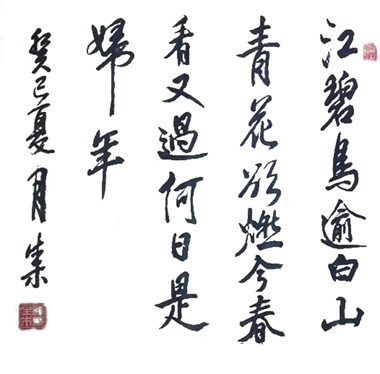 江碧鳥逾白山
青花欲燃今春
看又過何日是
歸年
癸巳夏月